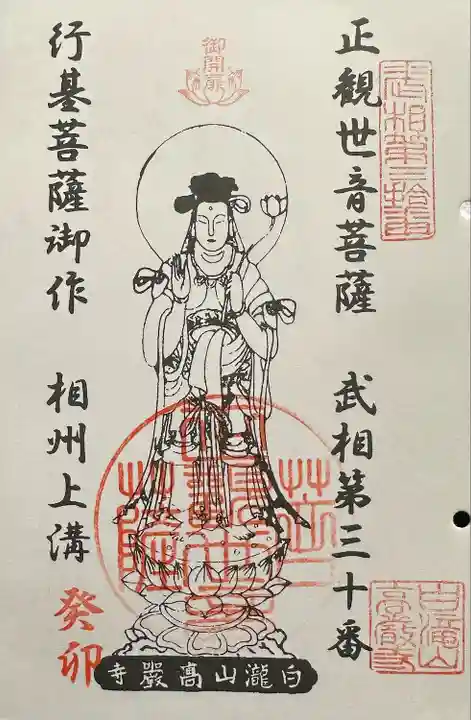 武相第三拾番
正観世音菩薩 武相第三十番
御開扉
行基菩薩御作 相州上溝
癸卯
白瀧山髙巖寺
白滝山
高巌寺